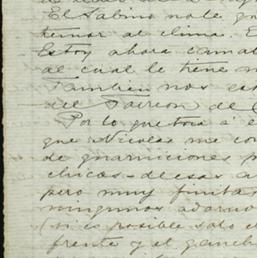 El Sabino no le
temor al clima. E
Estoy ahora
al cual le tiene
Tambien nos
del Torreon de
Por lo que toca á e
que Nicolas me co
de guarniciones p
chicas - de esas a
pero muy finitas
ningunos adorno
(si es posible solo el
frente y el ganch